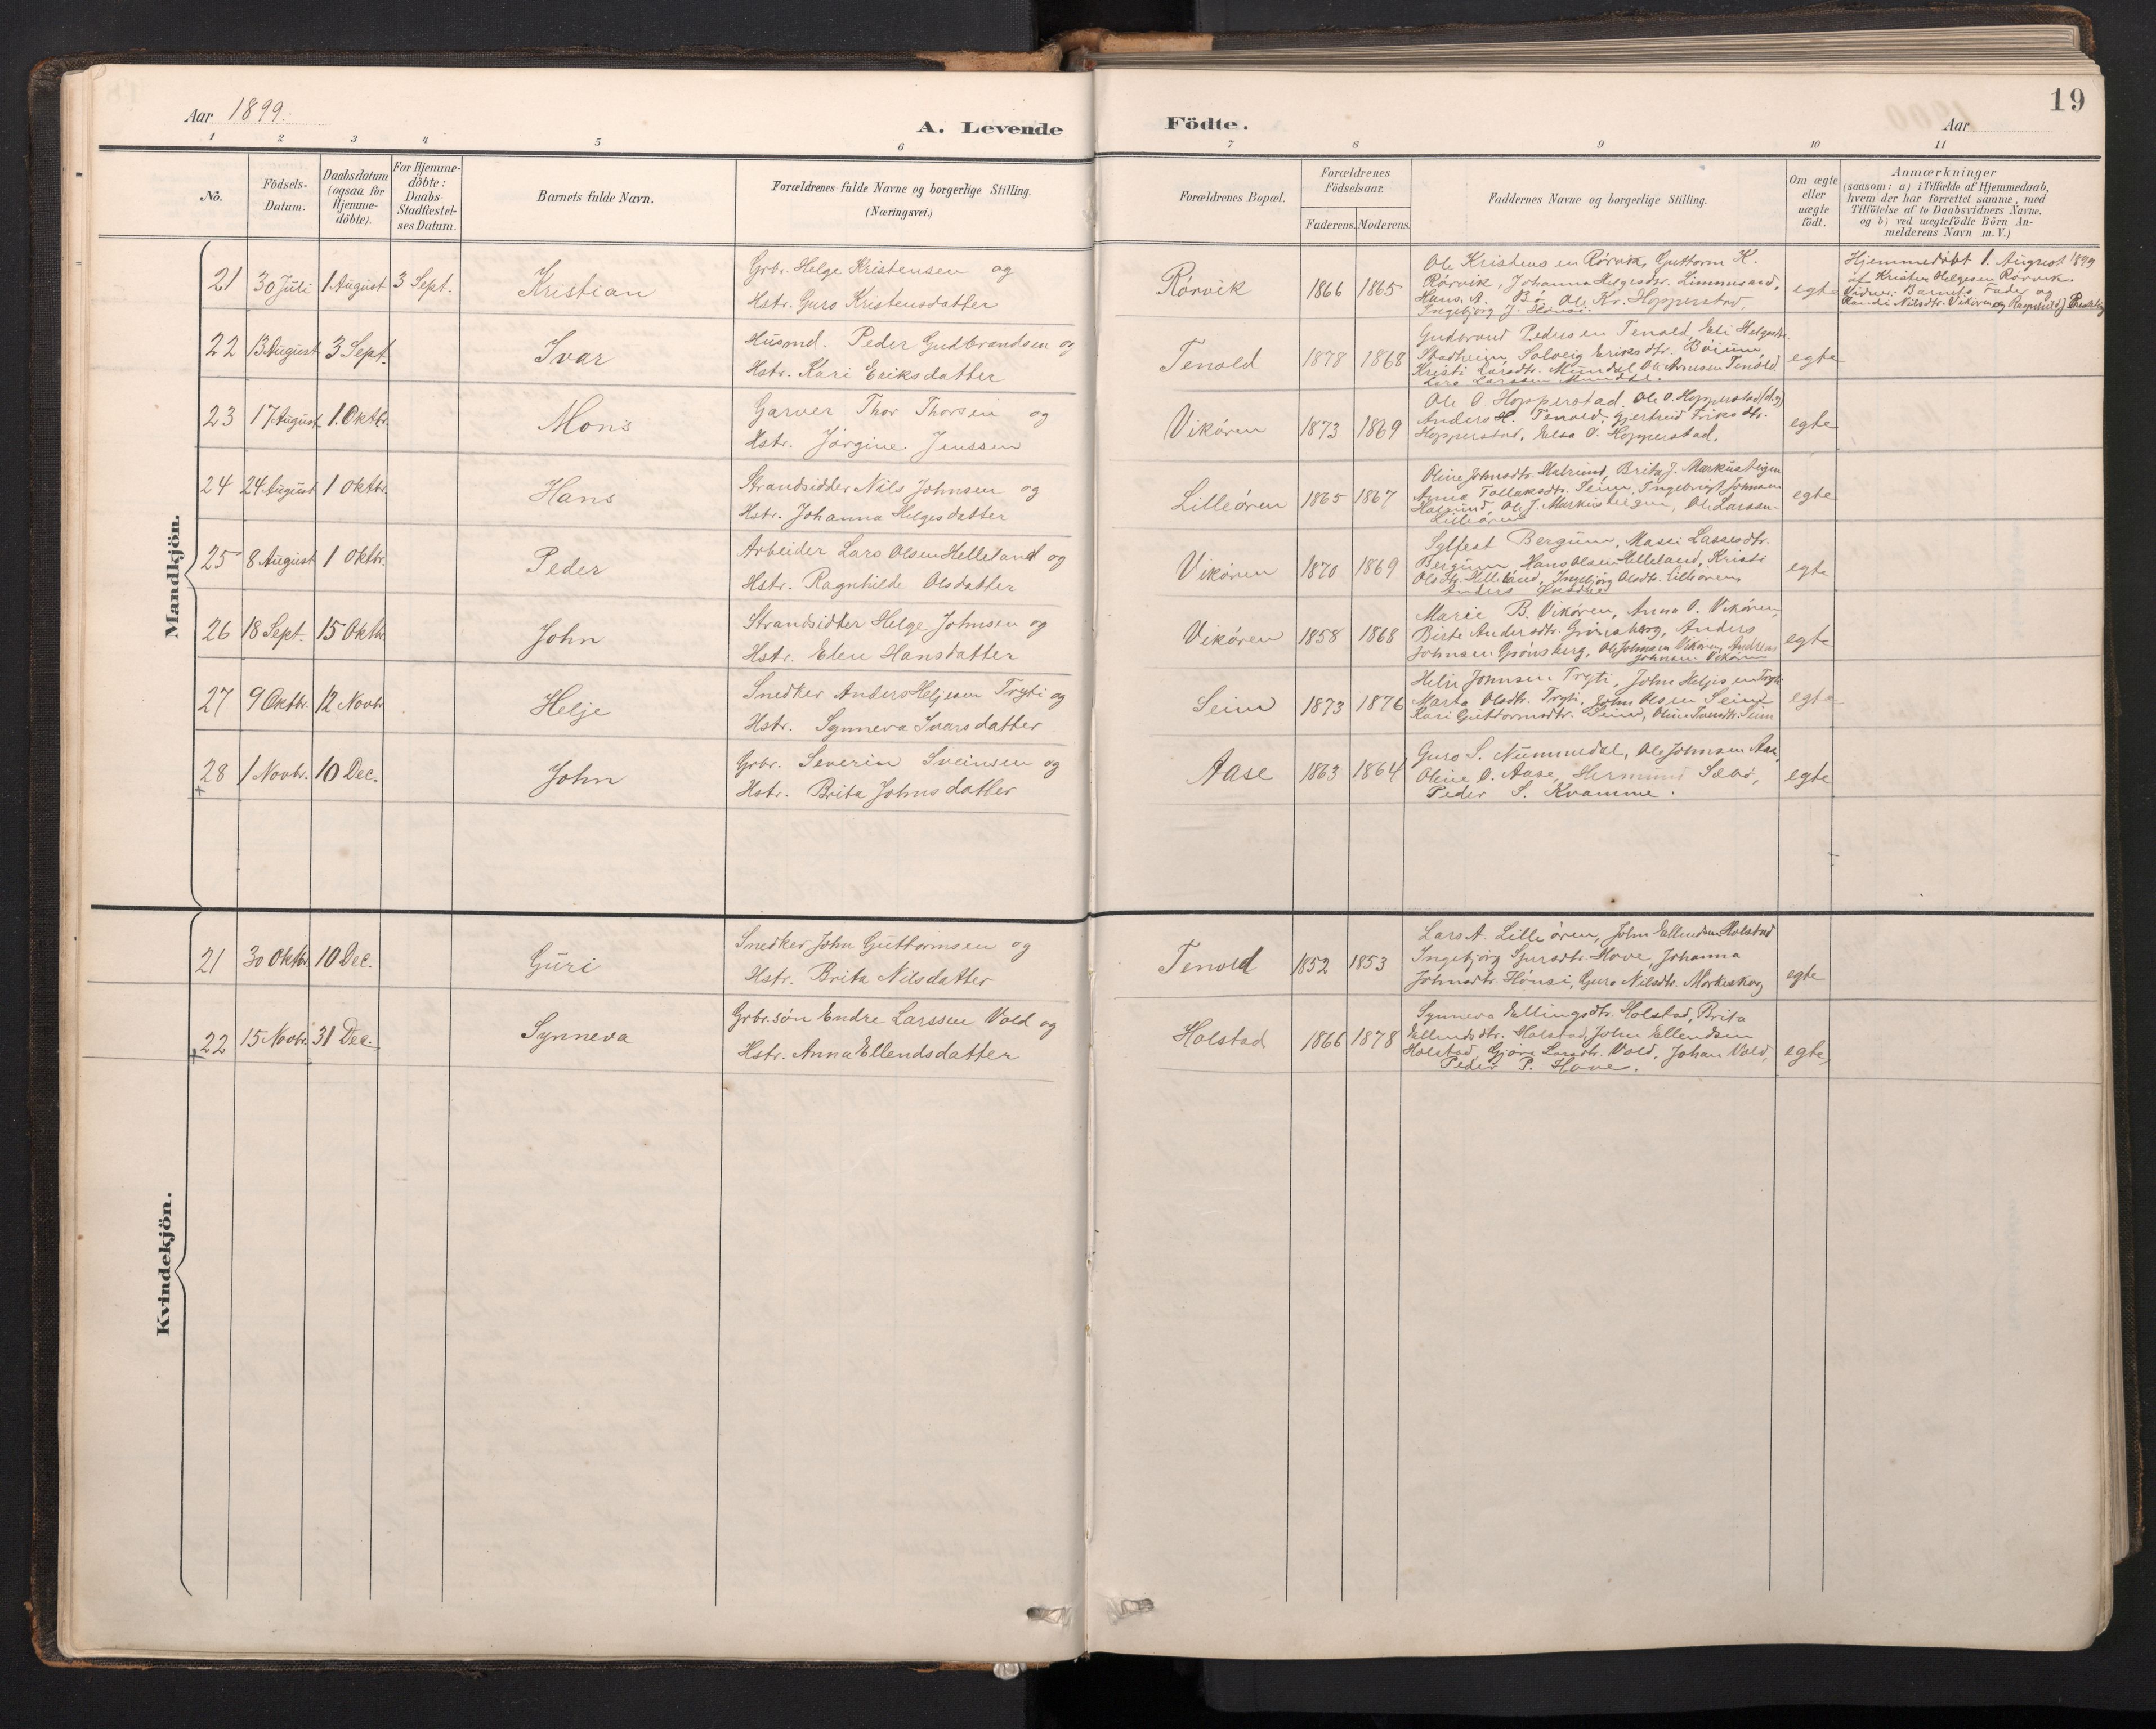 Aar 1899.
A. Levende
Födte.
Aar
19
1 2 3 4 5 6 7 8 9 10 11
No.
Födsels-
Datum.
Daabsdatum
(ogsaa for
Hjemme-
döbte).
For Hjemme-
döbte:
Daabs-
Stadfæstel-
ses Datum.
Barnets fulde Navn.
Forældrenes fulde Navne og borgerlige Stilling.
(Næringsvei.)
Forældrenes Bopæl.
Forældrenes
Födselsaar.
Faderens. Moderens.
Faddernes Navne og borgerlige Stilling.
Om ægte
eller
uægte
födt.
Anmærkninger
(saasom: a) i Tilfælde af Hjemmedaab,
hvem der har forrettet samme, med
Tilföielse af to Daabsvidners Navne,
og b) ved uægtefödte Börn An-
melderens Navn m. V.)
Mandkjön.
21 30 Juli 1 August 3 Sept. Kristian
Grbr. Helge Kristensen og
Hstr. Guro Kristensdatter
Rörvik 1866 1865
Ole Kristensen Rörvik, Guttorm K.
Rörvik, Johanna Helgesdtr. Limmesand,
Hans A. Bö, Ole Kr. Hopperstad,
Ingebjörg J. Hönsi.
egte
Hjemmedöbt 1. August 1899
af Kristen Helgesen Rörvik.
Vidner: Barnets Fader og
Randi Nilsdtr. Vikören og Ragnhild J.
22 13 August 3 Sept. Ivar
Husmd. Peder Gudbrandsen og
Hstr. Kari Eriksdatter
Tenold 1878 1868
Gudbrand Pedersen Tenold, Eli Helgesdtr.
Stadheim, Solveig Eriksdtr. Böium,
Kristi Larsdtr. Mundal, Ole Arnesen Tenold,
Lars Larssen Mundal.
egte
23 17 August 1. Oktbr. Mons
Garver Thor Thorsen og
Hstr. Jörgine Jenssen
Vikören 1873 1869
Ole O. Hopperstad, Ole O. Hopperstad (d.y)
Anders H. Tenold, Gjertrud Eriksdtr.
Hopperstad, Elsa O. Hopperstad.
egte
24 24 August 1 Oktbr. Hans
Strandsidder Nils Johnsen og
Hstr. Johanna Helgesdatter
Lilleören 1865 1867
Oline Johnsdtr. Brita J. Markusteigen
Anna Tollaksdtr. Seim, Ingebrigt Johnsen
Ole J. Markusteigen, Ole Larssen
Lilleören
egte
25 8 August 1 Oktbr. Peder
Arbeider Lars Olsen Helleland og
Hstr. Ragnhilde Olsdatter
Vikören 1870 1869
Sylfest Bergum, Lassesdtr.
Bergum, Hans Olsen Helleland, Kristi
Olsdtr. Helleland, Ingebjörg Olsdtr. Lilleören,
Anders
egte
26 18 Sept. 15 Oktbr. John
Strandsidder Helge Johnsen og
Hstr. Elen Hansdatter
Vikören 1858 1868
Marie B. Vikören, Anna O. Vikören,
Birte Andersdtr. Grönsberg, Anders
Johnsen Grönsberg, Ole Johnsen Vikören, Andreas
Johnsen Vikören
egte
27 9 Oktbr. 12 Novbr. Helje
Snedker Anders Heljesen Tryti og
Hstr. Synneva Ivarsdatter
Seim 1873 1876
Helje Johnsen Tryti, John Heljesen Tryti
Marta Olsdtr. Tryti, John Olsen Seim
Kari Guttormsdtr. Seim, Oline Ivarsdtr. Seim
egte
28 1 Novbr. 10 Dec. John
Grbr. Severin Sveinsen og
Hstr. Brita Johnsdatter
Aase 1863 1864
Guro S. Nummedal, Ole Johnsen Aase,
Oline O. Aase, Hermund Sæbö,
Peder S. Kvamme.
egte
Kvindekjön.
21 30 Oktbr. 10 Dec. Guri
Snedker John Guttormsen og
Hstr. Brita Nilsdatter
Tenold 1852 1853
Lars A. Lilleören, John Ellendsen Holstad
Ingebjörg Sjursdtr. Hove, Johanna
Johnsdtr. Hönsi, Guro Nilsdtr. Mörkeskog
egte
22 15 Novbr. 31 Dec. Synneva
Grbr.sön Endre Larssen Vold og
Hstr. Anna Ellendsdatter
Holstad 1866 1878
Synneva Ellingsdtr. Holstad, Brita
Ellendsdtr. Holstad, John Ellendsen
Holstad, Gjöri Larsdtr. Vold, Johan Vold,
Peder P. Hove.
egte